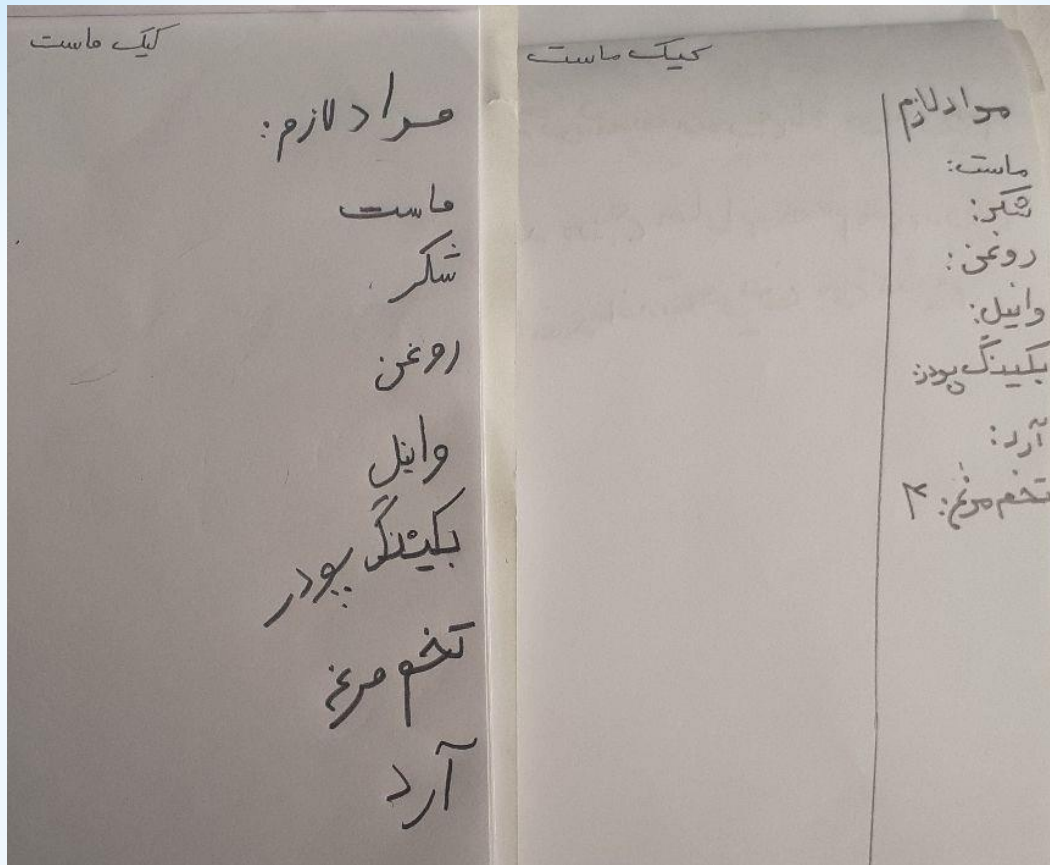 کیک ماست
مواد لازم
ماست:
شکر:
روغن:
وانیل:
بکینگ پودر:
آرد:
تخم مرغ: ۳
کیک ماست
مواد لازم:
ماست
شکر
روغن
وانیل
بکینگ پودر
تخم مرغ
آرد